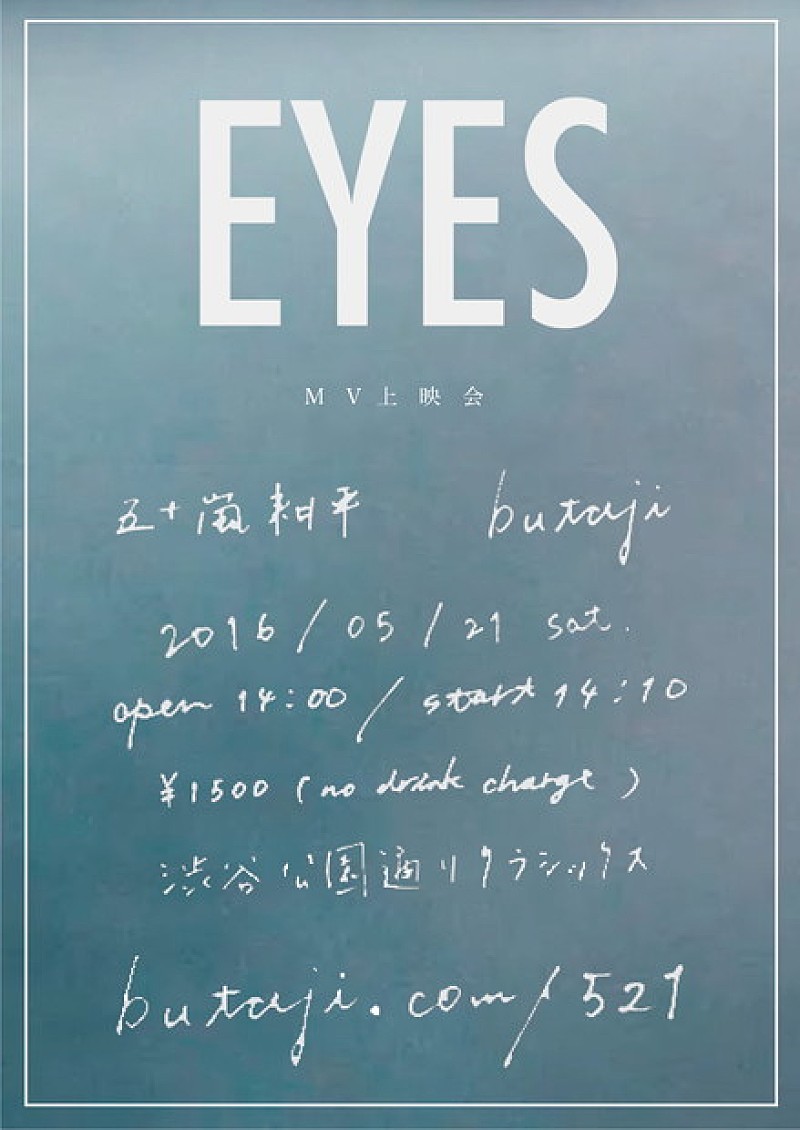 EYES
MV上映会
五十嵐耕平 butaji
2016/05/21 sat.
open 14:00 / start 14:10
¥1500 (no drink charge)
渋谷公園通りクラシックス
butaji.com/521